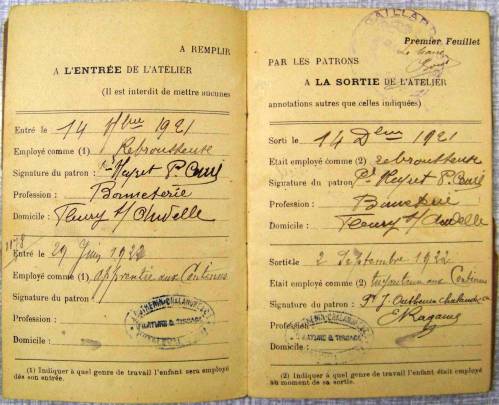 A REMPLIR
A L'ENTRÉE DE L'ATELIER
(Il est interdit de mettre aucunes
Entré le 14 9bre 1921
Employé comme (1) Rebrousseuse
Signature du patron : Heyret
Profession : Bonneterie
Domicile : Fleury s/ Andelle
1178
Entré le 29 Juin 1922
Employé comme (1) apprentie aux Continus
Signature du patron
Profession :
Domicile :
FILATURE & TISSAGE
(1) Indiquer à quel genre de travail l'enfant sera employé
dès son entrée.
GAILLARD
Premier Feuillet
Le Maire
PAR LES PATRONS
A LA SORTIE DE L'ATELIER
annotations autres que celles indiquées)
Sorti le 14 Dbre 1921
Etait employé comme (2) rebrousseuse
Signature du patron Heyret
Profession : Bonneterie
Domicile : Fleury s/ Andelle
Sorti le 2 Septembre 1922
Etait employé comme (2) aux Continus
Signature du patron :
Profession :
Domicile :
FILATURE & TISSAGE
(2) Indiquer à quel genre de travail l'enfant était employé
au moment de sa sortie.